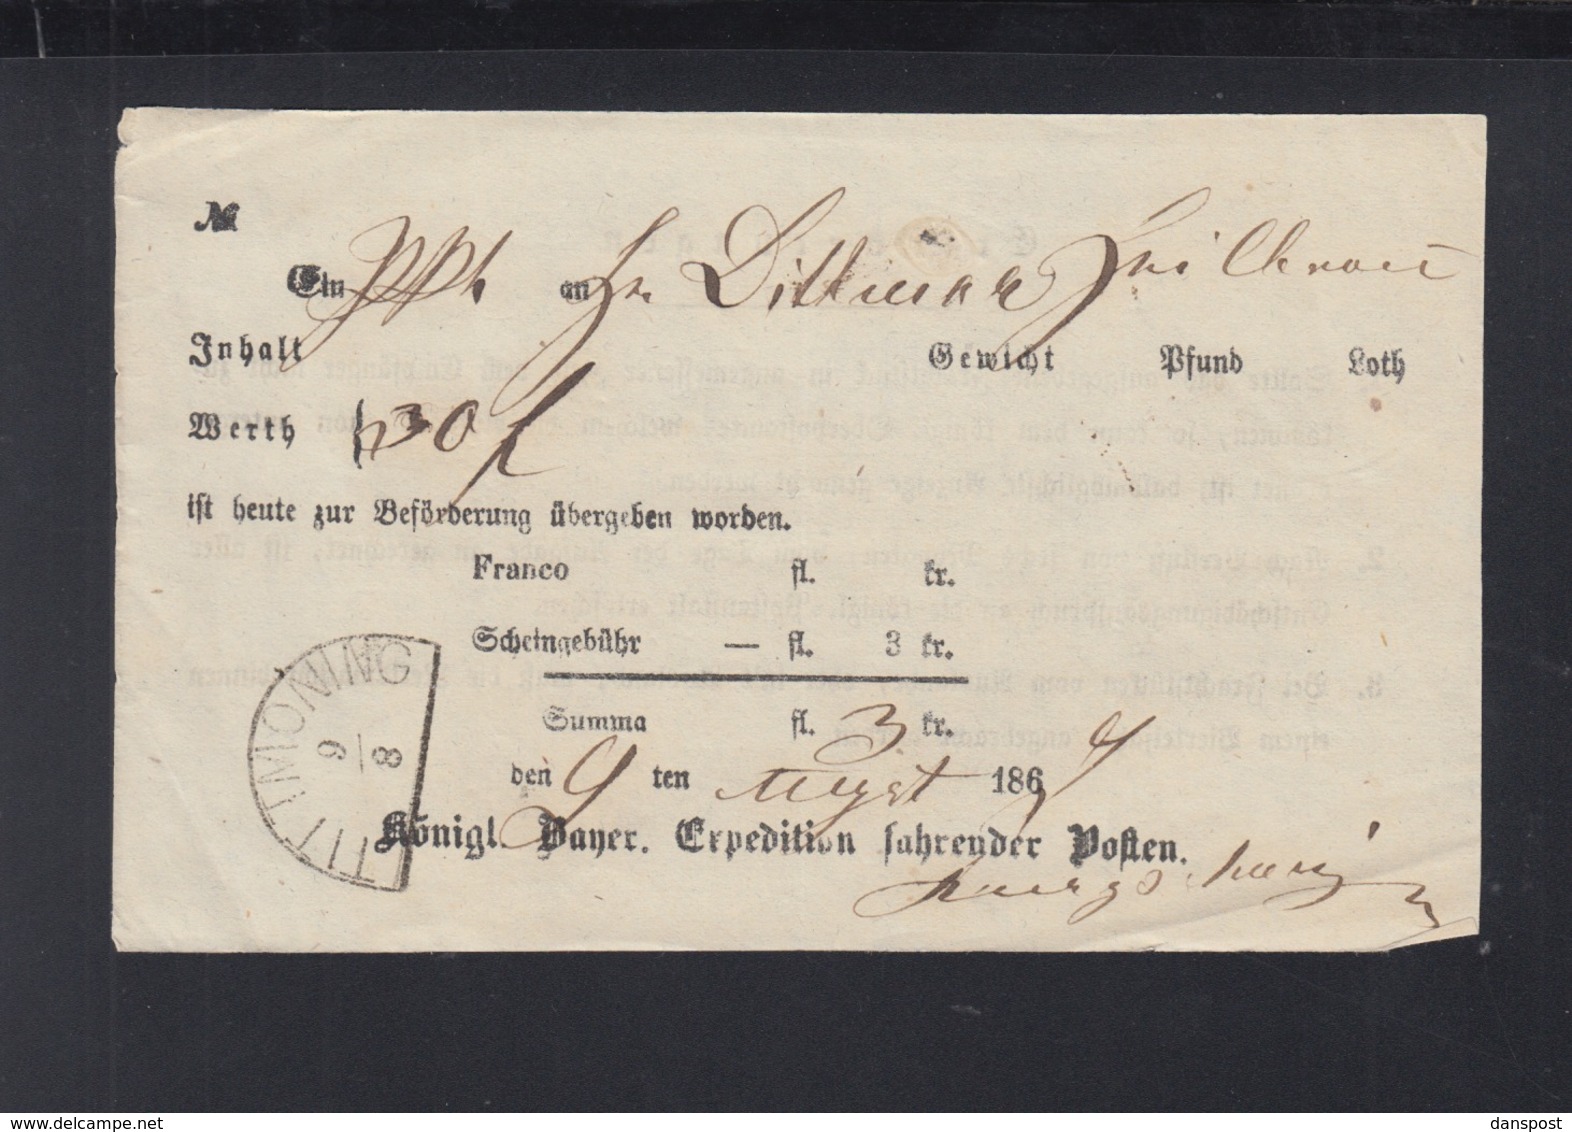 №
Ein an Hr Dittmar Heilbronn
Inhalt Gewicht Pfund Loth
Werth { 30 f
ist heute zur Beförderung übergeben worden.
Franco fl. kr.
Scheingebühr — fl. 3 kr.
Summa fl. 3 kr.
den 9 ten August 1864
Königl. Bayer. Expedition fahrender Posten.
TITTMONING
9
8
danspost